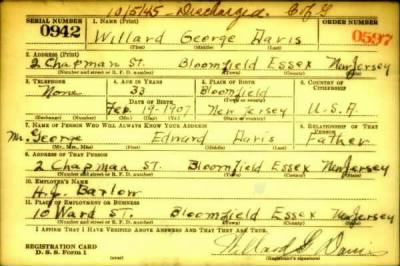 10/5/45 - Discharged. C of G
SERIAL NUMBER 1. NAME (Print) ORDER NUMBER
0942 Willard George Davis 0597
(First) (Middle) (Last)
2. ADDRESS (Print)
2 Chapman St. Bloomfield Essex New Jersey
(Number and street or R. F. D. number) (Town) (County) (State)
3. TELEPHONE 4. AGE IN YEARS 5. PLACE OF BIRTH 6. COUNTRY OF CITIZENSHIP
None 33 Bloomfield
DATE OF BIRTH (Town or county)
Feb. 19-1907 New Jersey U.S.A.
(Exchange) (No.) (Mo.) (Day) (Yr.) (State or country)
7. NAME OF PERSON WHO WILL ALWAYS KNOW YOUR ADDRESS 8. RELATIONSHIP OF THAT PERSON
Mr. George Edward Davis Father
(Mr., Mrs., Miss) (First) (Middle) (Last)
9. ADDRESS OF THAT PERSON
2 Chapman St. Bloomfield Essex New Jersey
(Number and street or R. F. D. number) (Town) (County) (State)
10. EMPLOYER'S NAME
H.J. Barlow
11. PLACE OF EMPLOYMENT OR BUSINESS
10 Ward St. Bloomfield Essex New Jersey
(Number and street or R. F. D. number) (Town) (County) (State)
I AFFIRM THAT I HAVE VERIFIED ABOVE ANSWERS AND THAT THEY ARE TRUE.
REGISTRATION CARD
D. S. S. Form 1 (over) Willard G. Davis
(Registrant's signature)